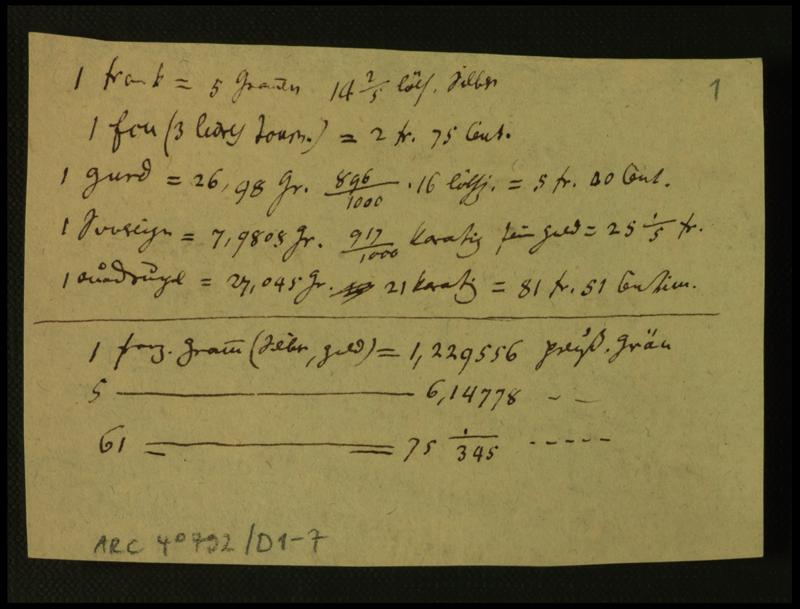 1 frank = 5 Gramm 14 2/5 löth. Silber
1
1 Ecu (3 livres tourn.) = 2 fr. 75 Cent.
1 gurd = 26,98 Gr. 896/1000 . 16 löthg. = 5 fr. 40 Cent.
1 Sovereign = 7,9808 Gr. 917/1000 karatig fein gold = 25 1/5 fr.
1 quadrupel = 27,045 Gr. 21 karatig = 81 fr. 51 Centim.
1 franz. Gramm (Silber, gold) = 1,229556 preuß. Grän
5 ——— 6,14778 – –
61 === 75 1/345 - - - - -
ARC 4°792/D1-7